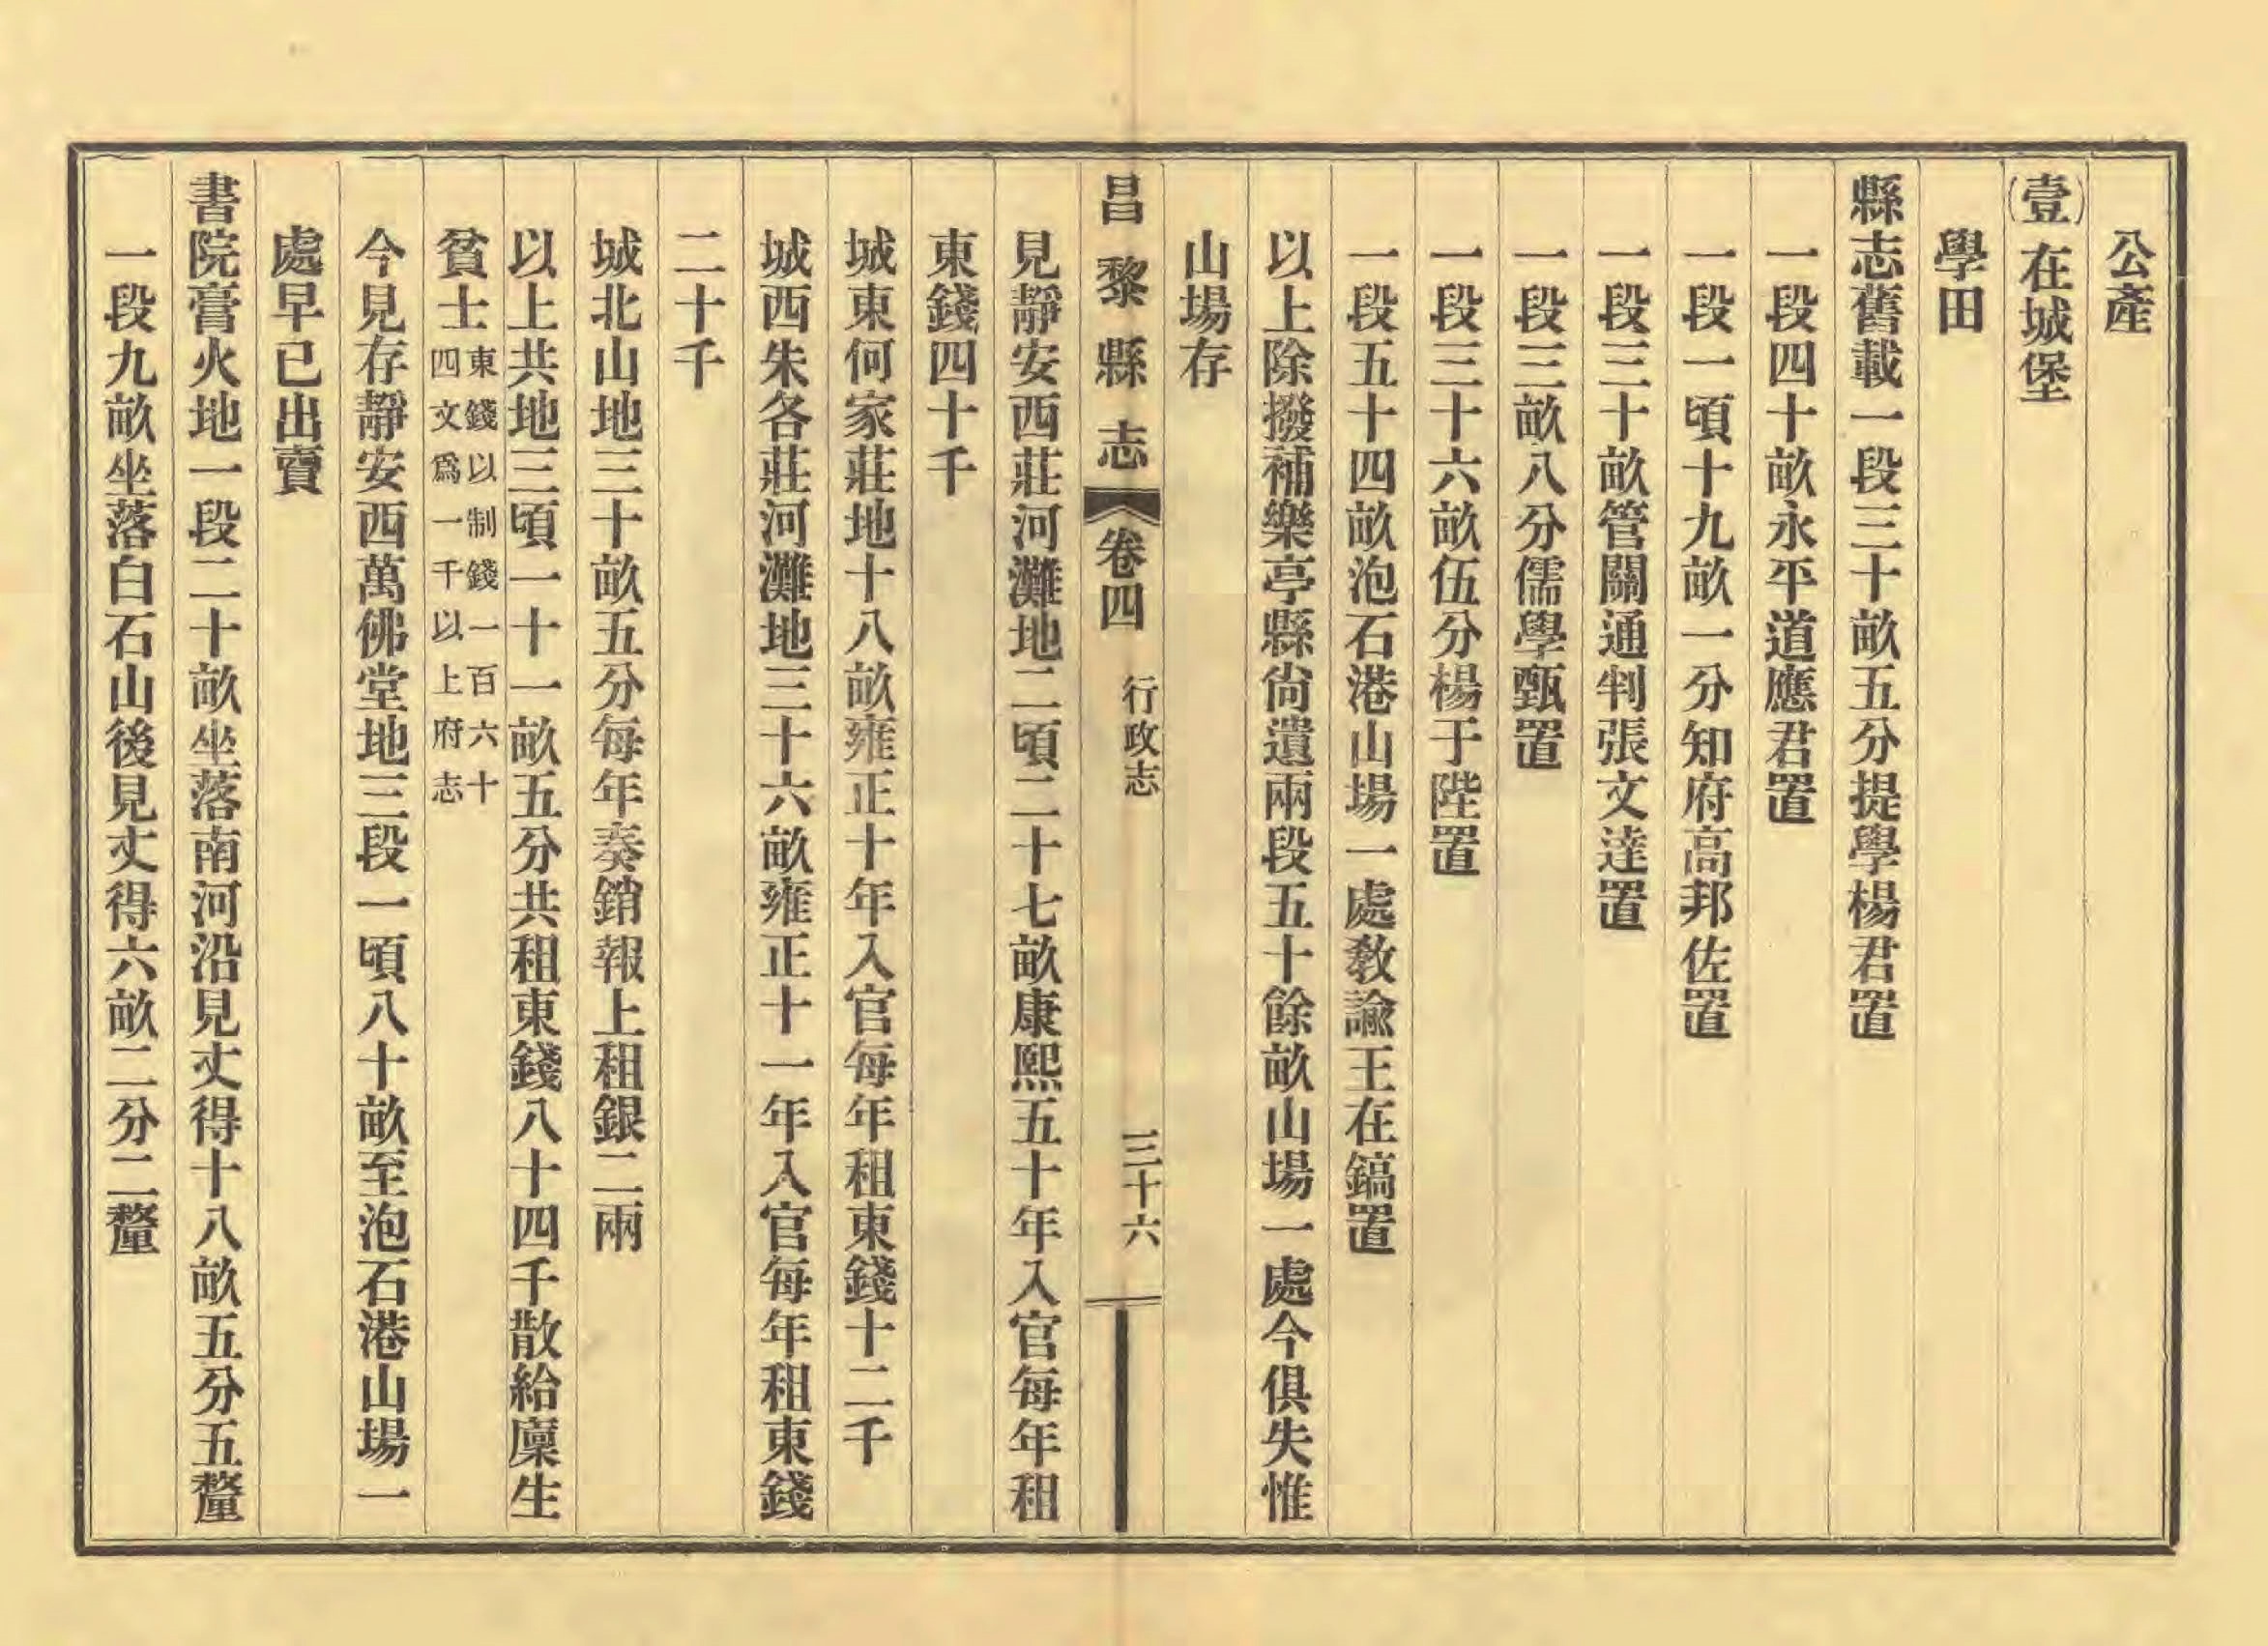 公產
(壹)在城堡
學田
縣志舊載一段三十畝五分提學楊君置
一段四十畝永平道應君置
一段一頃十九畝一分知府高邦佐置
一段三十畝管關通判張文達置
一段三畝八分儒學甄置
一段三十六畝伍分楊于陛置
一段五十四畝泡石港山場一處教諭王在鎬置
以上除撥補樂亭縣尙遺兩段五十餘畝山場一處今俱失惟
山場存
昌黎縣志 卷四 行政志 三十六
見靜安西莊河灘地二頃二十七畝康熙五十年入官每年租
東錢四十千
城東何家莊地十八畝雍正十年入官每年租東錢十二千
城西朱各莊河灘地三十六畝雍正十一年入官每年租東錢
二十千
城北山地三十畝五分每年奏銷報上租銀二兩
以上共地三頃一十一畝五分共租東錢八十四千散給廩生
貧士東錢以制錢一百六十
四文爲一千以上府志
今見存靜安西萬佛堂地三段一頃八十畝至泡石港山場一
處早已出賣
書院膏火地一段二十畝坐落南河沿見丈得十八畝五分五釐
一段九畝坐落白石山後見丈得六畝二分二釐